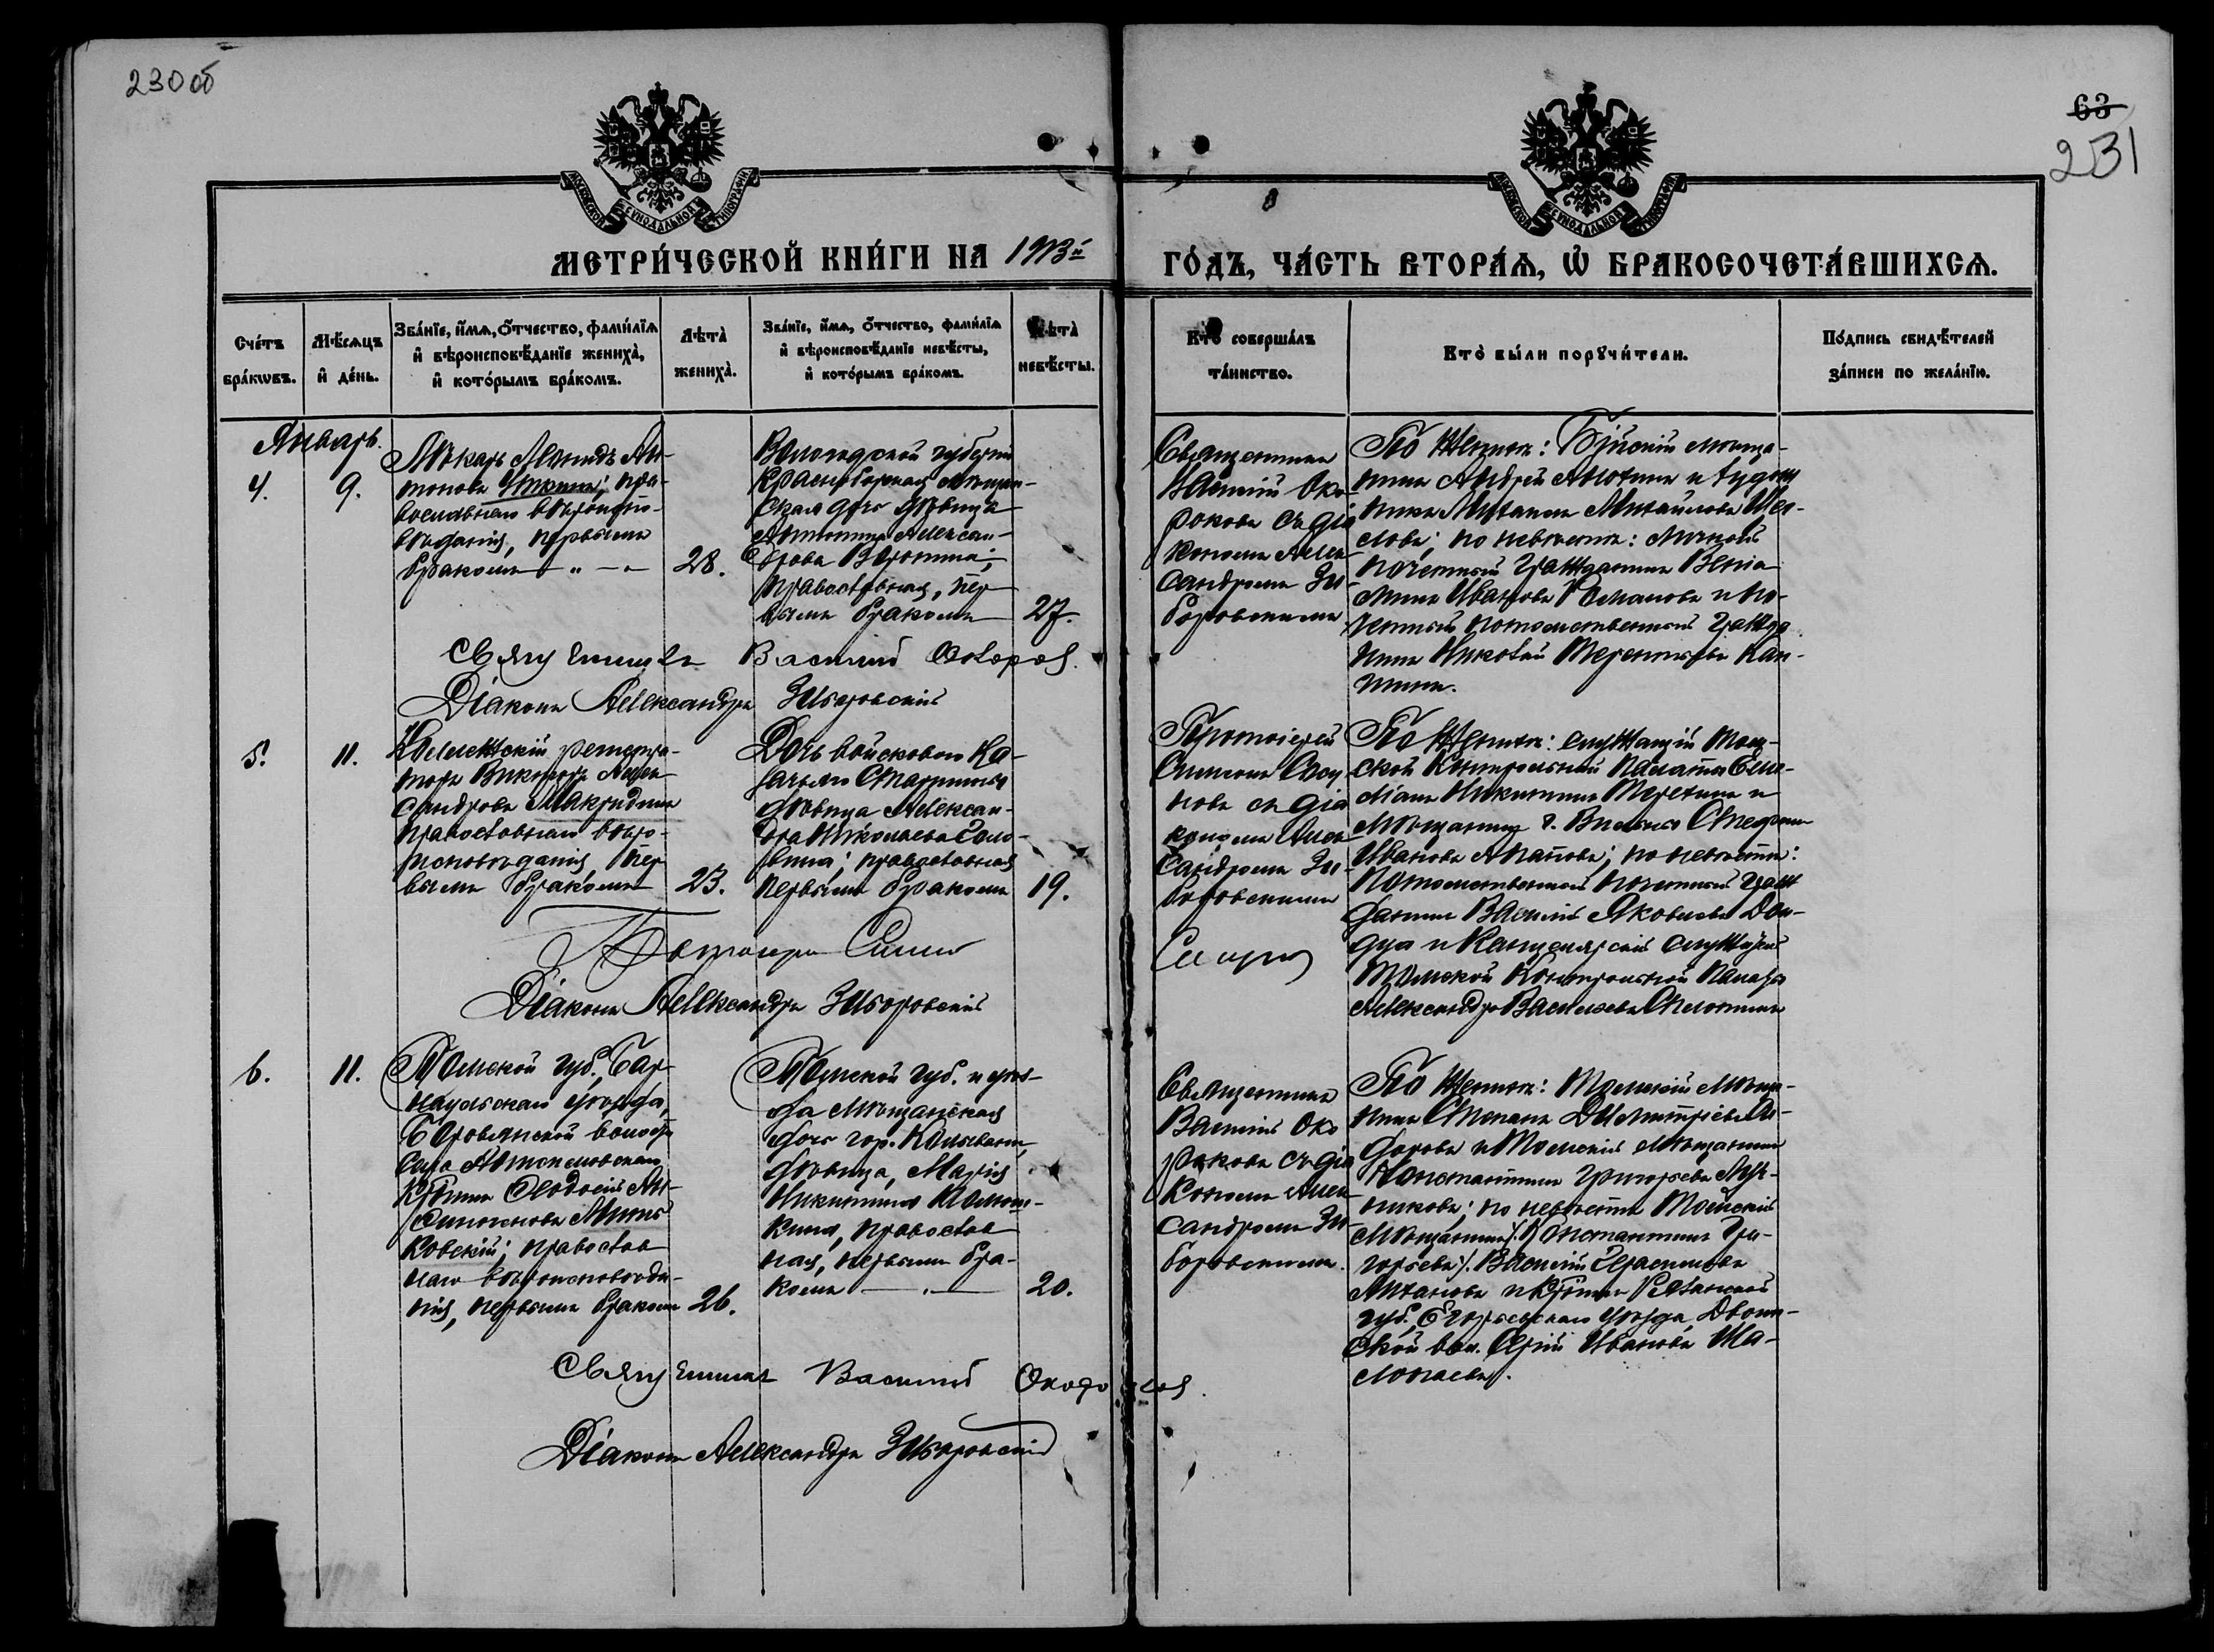 230 об
63
231
МОСКОВСКОЙ СѴНОДАЛЬНОЙ ТИПОГРАФІИ
МОСКОВСКОЙ СѴНОДАЛЬНОЙ ТИПОГРАФІИ
МЕТРИ́ЧЕСКОЙ КНИ́ГИ НА 1913й
ГО́ДЪ, ЧА́СТЬ ВТОРА́Ѧ, Ѡ҆ БРАКОСОЧЕТА́ВШИХСѦ.
Сче́тъ
бра́кωвъ.
Мѣ́сѧцъ
и҆ де́нь.
Зва́нїе, и҆́мѧ, ѻ҆́тчество, фамилїѧ
и҆ вѣроисповѣ́данїе жениха̀,
и҆ кото́рымъ бра́комъ.
Лѣта̀
жениха̀.
Зва́нїе, и҆́мѧ, ѻ҆́тчество, фамилїѧ
и҆ вѣроисповѣ́данїе невѣ́сты,
и҆ кото́рымъ бра́комъ.
Лѣта̀
невѣ́сты.
Кто̀ соверша́лъ
та́инство.
Кто̀ бы́ли порꙋчи́тели.
По́дпись свидѣ́телей
за́писи по жела́нїю.
Январь.
4.
9.
Лѣкарь Леонидъ Ан-
тоновъ пра-
вославнаго вѣроиспо-
вѣданія, первымъ
бракомъ — " — "
28.
Вологодской губерніи
Красноборская мѣщан-
ская дочь дѣвица
Антонина Алексан-
дрова
православная, пер-
вымъ бракомъ
27.
Священникъ
Василій Око-
роковъ съ діа
кономъ Алек
сандромъ Зи-
боровскимъ
По женихѣ: Бійскій мѣща-
нинъ Андрей и худож
никъ Михаилъ Михайловъ Щег-
ловъ; по невѣстѣ: личный
почетный гражданинъ Веніа
минъ Ивановъ Романовъ и по-
четный потомственный гражда
нинъ Николай Терентьевъ Кан-
шинъ.
Священникъ Василій Окороков.
Діаконъ Александръ Зиборовскій
5.
11.
Коллежскій регистра-
торъ Викторъ Алек-
сандровъ Макридинъ
православнаго вѣро-
исповѣданія, пер
вымъ бракомъ
23.
Дочь войсковаго Ка-
зачьяго Старшины
дѣвица Алексан-
дра Николаева
православная
первымъ бракомъ
19.
Протоіерей
Симеонъ
новъ съ діа
кономъ Алек
сандромъ Зи-
боровскимъ
По женихѣ: служащій Том-
ской Контрольной Палаты Еми-
ліанъ Никитинъ Терехинъ и
мѣщанинъ г. Вильно Стефанъ
Ивановъ Агаповъ; по невѣстѣ:
потомственный почетный граж
данинъ Василій Яковлевъ
и Канцелярскій служитель
Томской Контрольной Палаты
Александръ Васильевъ
Протоіерей Симео
Діаконъ Александръ Зиборовскій
6.
11.
Томской губ., Бар-
наульскаго уѣзда,
Боровлянской волости
села
крѣстьян. Ѳеодосій Ан-
ковскій; православ
наго вѣроисповѣда-
нія, первымъ бракомъ
26.
Томской губ. и уѣз-
да мѣщанская
дочь гор. Колывани,
дѣвица, Марія
Никитина
кина, православ
ная, первымъ бра-
комъ — " —
20.
Священникъ
Василій Око
роковъ съ діа
кономъ Алек
сандромъ Зи-
боровскимъ.
По женихѣ: Томскій мѣща-
нинъ Степанъ Димитріевъ
и Томскій мѣщанинъ
Константинъ Григорьевъ Луч-
никовъ; по невѣстѣ Томскій
мѣщанинъ /. Константинъ Гри-
горьевъ /. Василій Герасимовъ
и крѣст. Рязанской
губ., Егорьевскаго уѣзда,
ской вол. Сергій Ивановъ Ша-
Священникъ Василій Окороков.
Діаконъ Александръ Зиборовскій